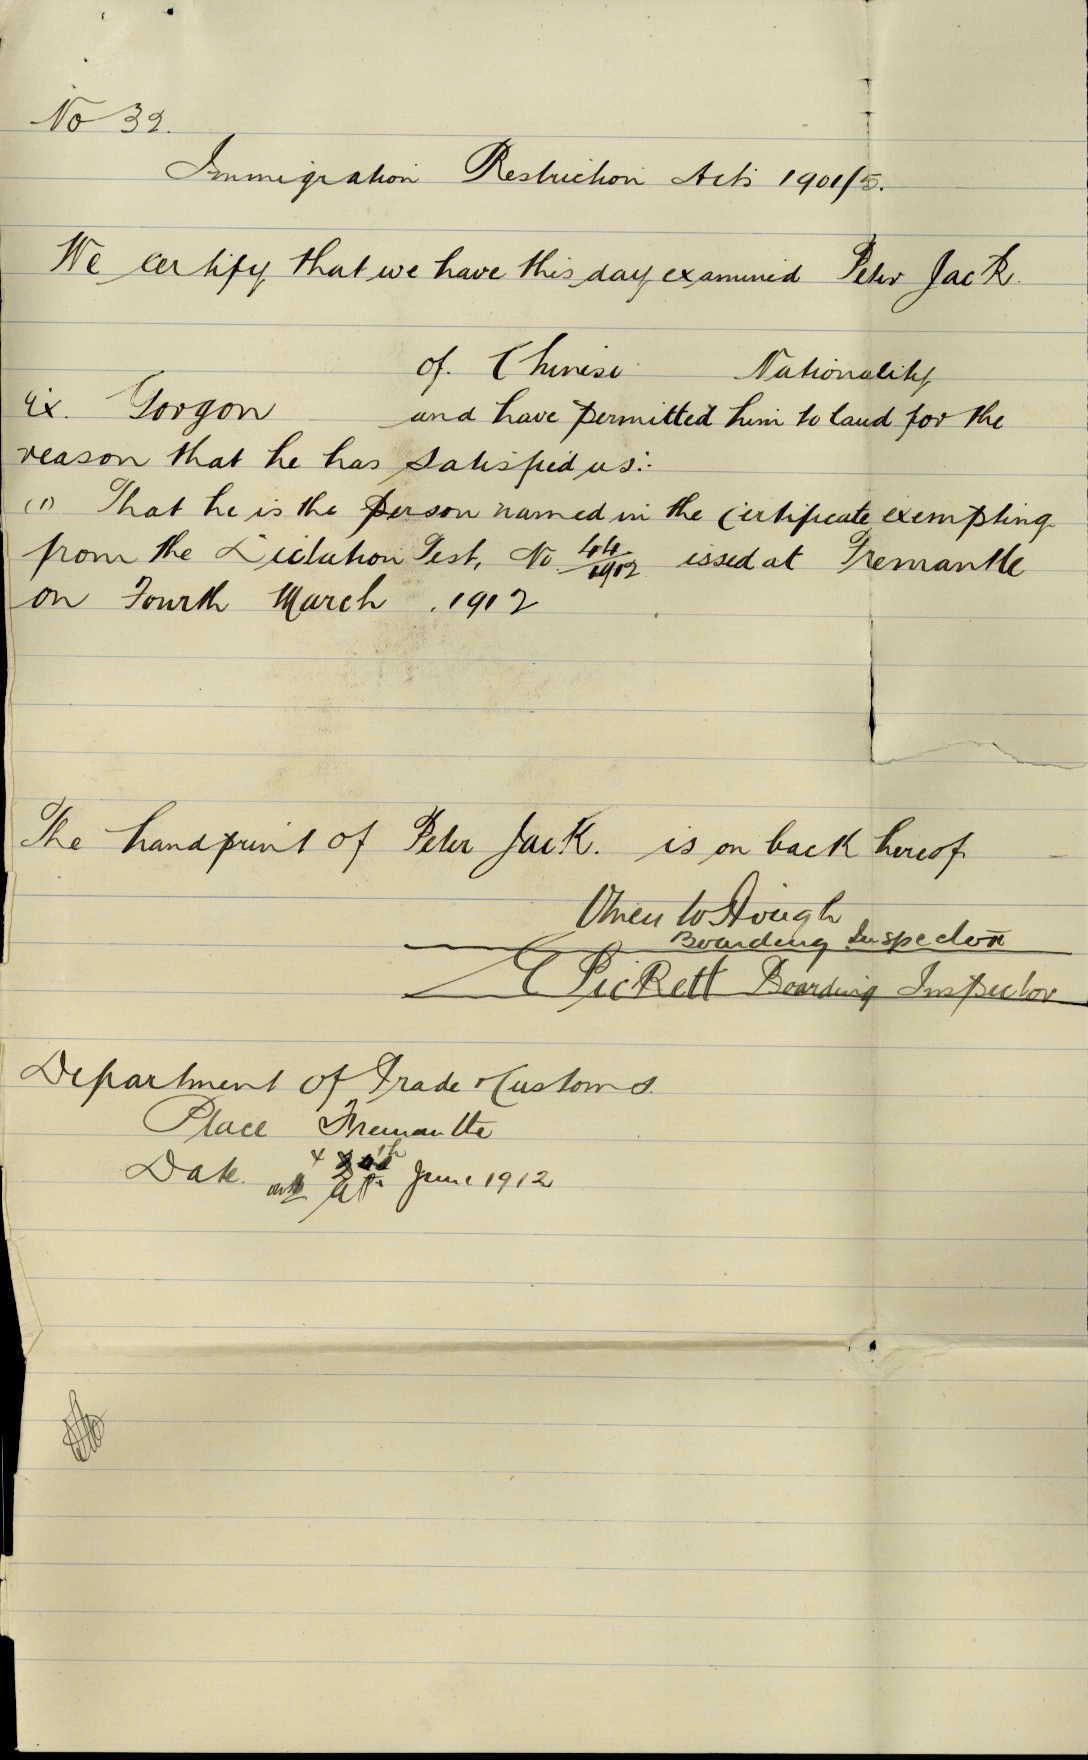 No 32.
Immigration Restriction Acts 1901/5.
We certify that we have this day examined Peter Jack.
of. Chinese Nationality
Ex. Gorgon and have permitted him to land for the
reason that he has satisfied us:-
(1) That he is the person named in the certificate exempting
from the Dictation Test, No 44/1912 issed at Fremantle
on Fourth March . 1912
The handprint of Peter Jack. is on back hereof
Boarding Inspector
E Pickett Boarding Inspector
Department of Trade & Customs.
Place Fremantle
Date June 1912